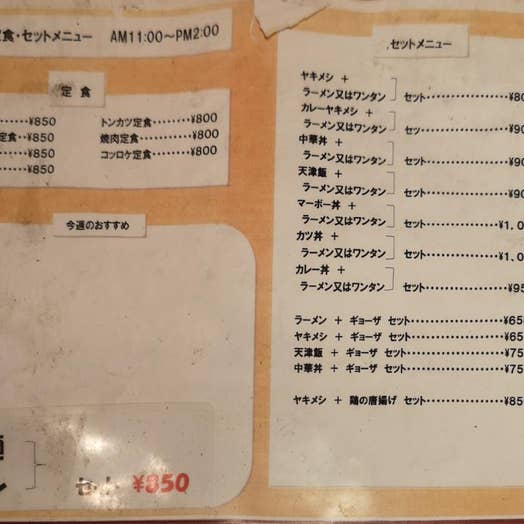 定食・セットメニュー AM11:00~PM2:00
定食
¥850
定食‥¥850
¥850
¥850
トンカツ定食‥‥‥¥800
焼肉定食‥‥‥‥¥800
コッロケ定食‥‥‥¥800
今週のおすすめ
セット ¥850
セットメニュー
ヤキメシ +
ラーメン又はワンタン セット‥‥‥‥‥‥¥80
カレーヤキメシ +
ラーメン又はワンタン セット‥‥‥‥‥‥¥90
中華丼 +
ラーメン又はワンタン セット‥‥‥‥‥‥¥90
天津飯 +
ラーメン又はワンタン セット‥‥‥‥‥‥¥90
マーボー丼 +
ラーメン又はワンタン セット‥‥‥‥‥¥1.0
カツ丼 +
ラーメン又はワンタン セット‥‥‥‥‥¥1.0
カレー丼 +
ラーメン又はワンタン セット‥‥‥‥‥‥¥95
ラーメン + ギョーザ セット‥‥‥‥‥‥‥¥65
ヤキメシ + ギョーザ セット‥‥‥‥‥‥‥¥65
天津飯 + ギョーザ セット‥‥‥‥‥‥‥¥75
中華丼 + ギョーザ セット‥‥‥‥‥‥‥¥75
ヤキメシ + 鶏の唐揚げ セット‥‥‥‥‥‥¥85